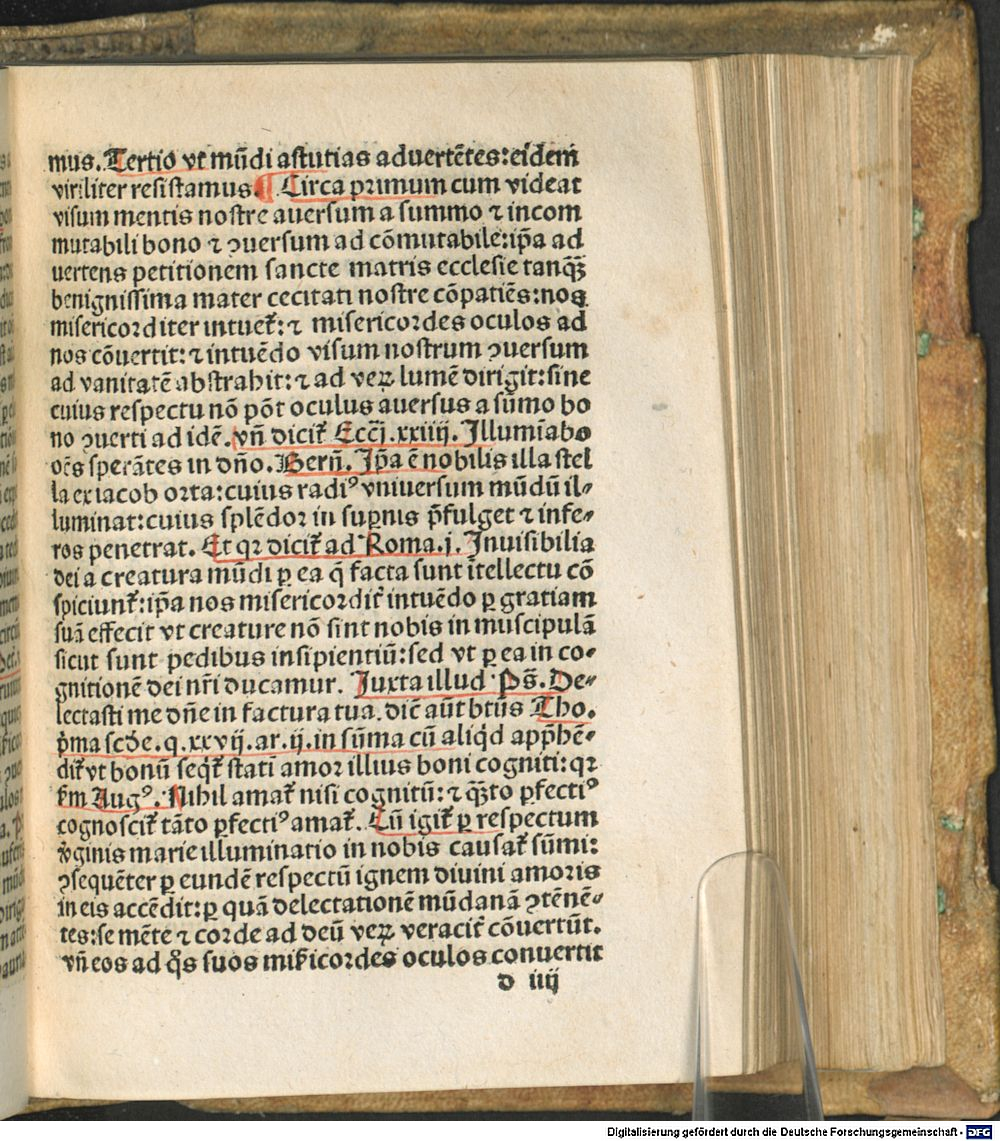 mus. Tertio vt mūdi astutias aduertētes: eidem
viriliter resistamus. ¶ Circa primum cum videat
visum mentis nostre auersum a summo ⁊ incom
mutabili bono ⁊ ꝯuersum ad cōmutabile: ip̄a ad
uertens petitionem sancte matris ecclesie tanꝙ̄
benignissima mater cecitati nostre cōpatiēs: nos
misericorditer intuet̃: ⁊ misericordes oculos ad
nos cōuertit: ⁊ intuēdo visum nostrum ꝯuersum
ad vanitatē abstrahit: ⁊ ad veꝝ lumē dirigit: sine
cuius respectu nō pōt oculus auersus a sūmo bo
no ꝯuerti ad idē. vn̄ dicit̃ Ecc̄j. xxiiij. Illumīabo
oēs sperātes in dn̄o. Bern̄. Ip̄a ē nobilis illa stel
la ex iacob orta: cuius radiꝰ vniuersum mūdū il⸗
luminat: cuius splēdor in suꝑnis p̄fulget ⁊ infe⸗
ros penetrat. Et qꝛ dicit̃ ad Roma. j. Inuisibilia
dei a creatura mūdi ꝑ ea q̄ facta sunt ītellectu cō
spiciunt̃: ip̄a nos misericordit̃ intuēdo ꝑ gratiam
suā effecit vt creature nō sint nobis in muscipulā
sicut sunt pedibus insipientiū: sed vt ꝑ ea in co⸗
gnitionē dei nr̄i ducamur. Iuxta illud Ps̄. De⸗
lectasti me dn̄e in factura tua. dic̄ aūt btūs Tho.
p̄ma scd̄e. q. xxvij. ar. ij. in sūma cū aliqd̓ app̄hē⸗
dit̃ vt bonū seqt̃ statī amor illius boni cogniti: qꝛ
fm̄ Augꝰ. Nihil amat̃ nisi cognitū: ⁊ ꝙ̄to ꝑfectiꝰ
cognoscit̃ tāto ꝑfectiꝰ amat̃. Cū igit̃ ꝑ respectum
v̓ginis marie illuminatio in nobis causat̃ sūmi:
ꝯsequēter ꝑ eundē respectū ignem diuini amoris
in eis accēdit: ꝑ quā delectationē mūdanā ꝯtēnē⸗
tes: se mēte ⁊ corde ad deū veꝝ veracit̃ cōuertūt.
vn̄ eos ad q̄s suos mīs̄icordes oculos conuertit
d iiij
Digitalisierung gefördert durch die Deutsche Forschungsgemeinschaft - DFG